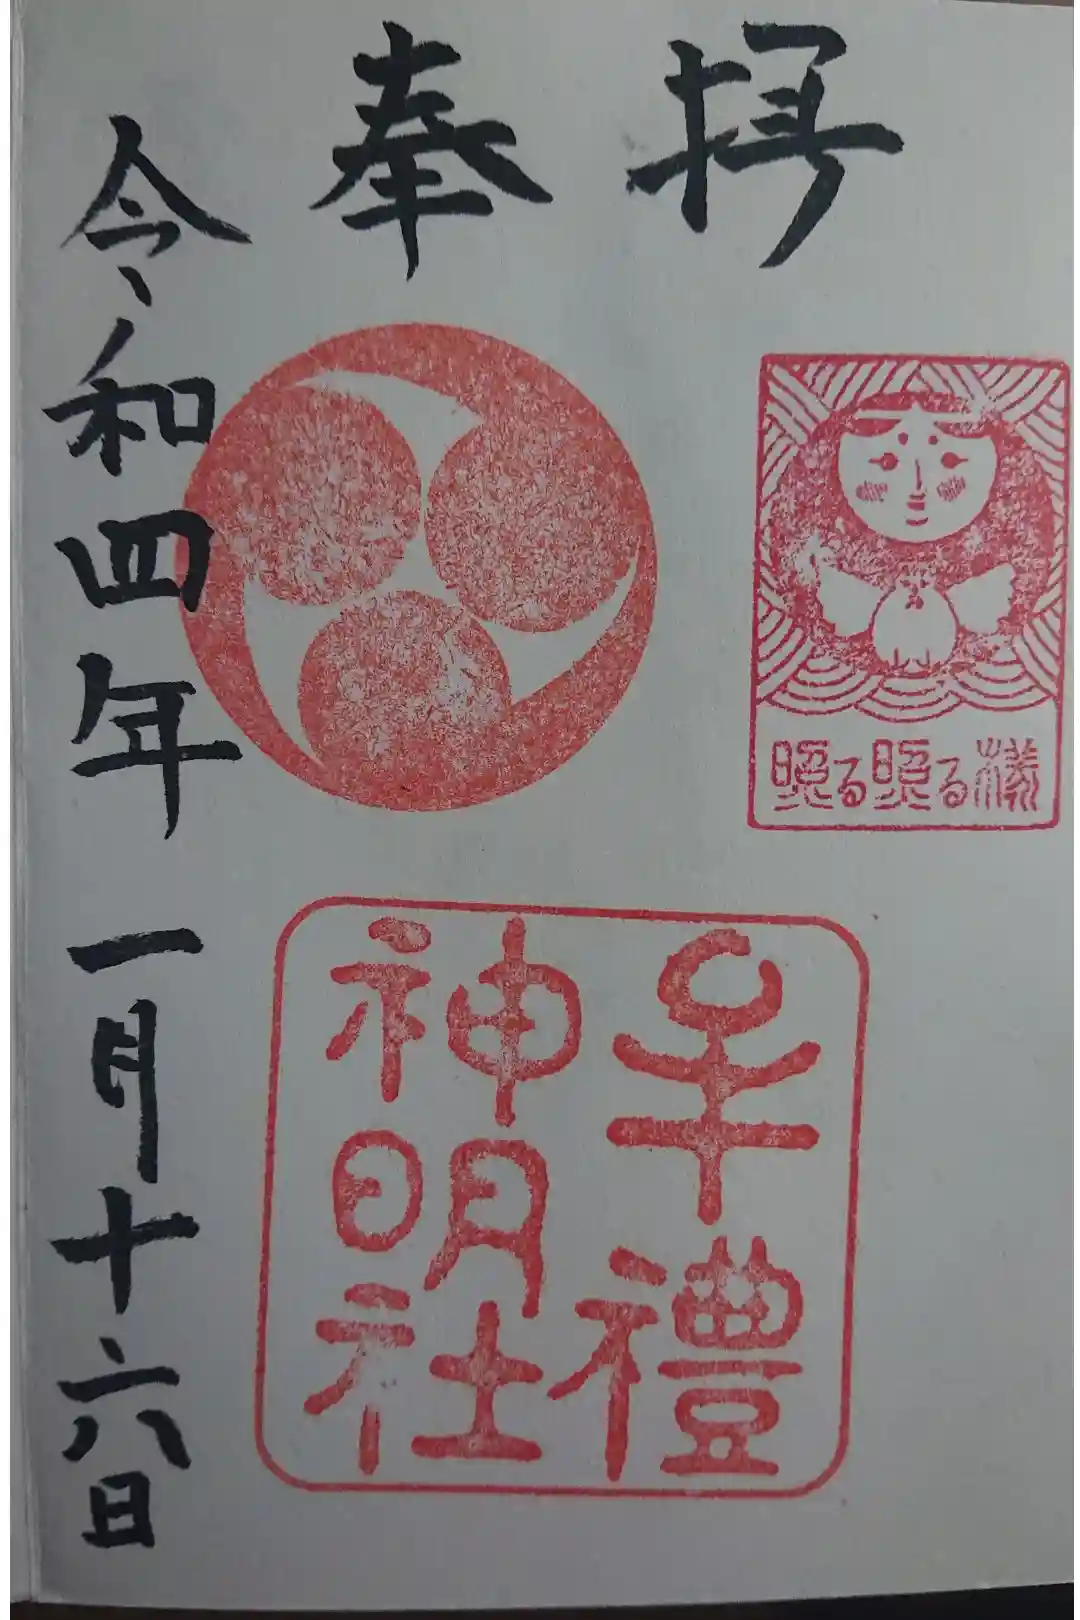 奉拝
照る照る様
牟禮
神明社
令和四年一月十六日